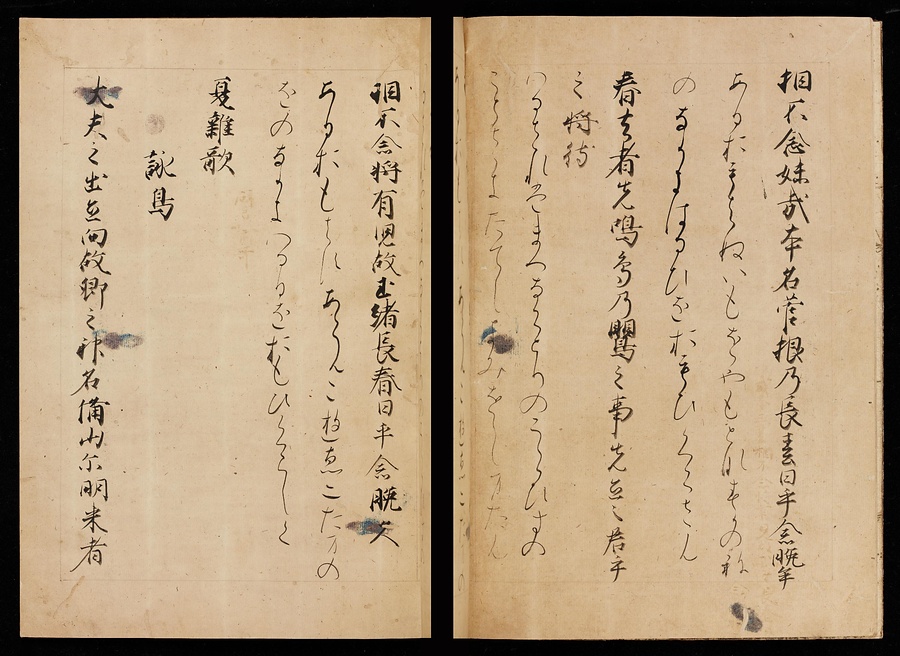 相不念妹哉本名菅根乃長春日乎念晩牟
あひおもはぬいもをやもとなすかのね
のなかきはるひをおもひくらさん
春去者先鳴鳥乃鸎之事先立之君乎
之将待
はるされはまつなくとりのうくひすの
ことさきたてしきみをしまたん
相不念将有児故玉緒長春日乎念晩久
あひおもはすあるらんこゆゑにたまの
をのなかきはるひをおもひくらしつ
夏雜歌
詠鳥
大夫之出立向故郷之神名備山尓明来者